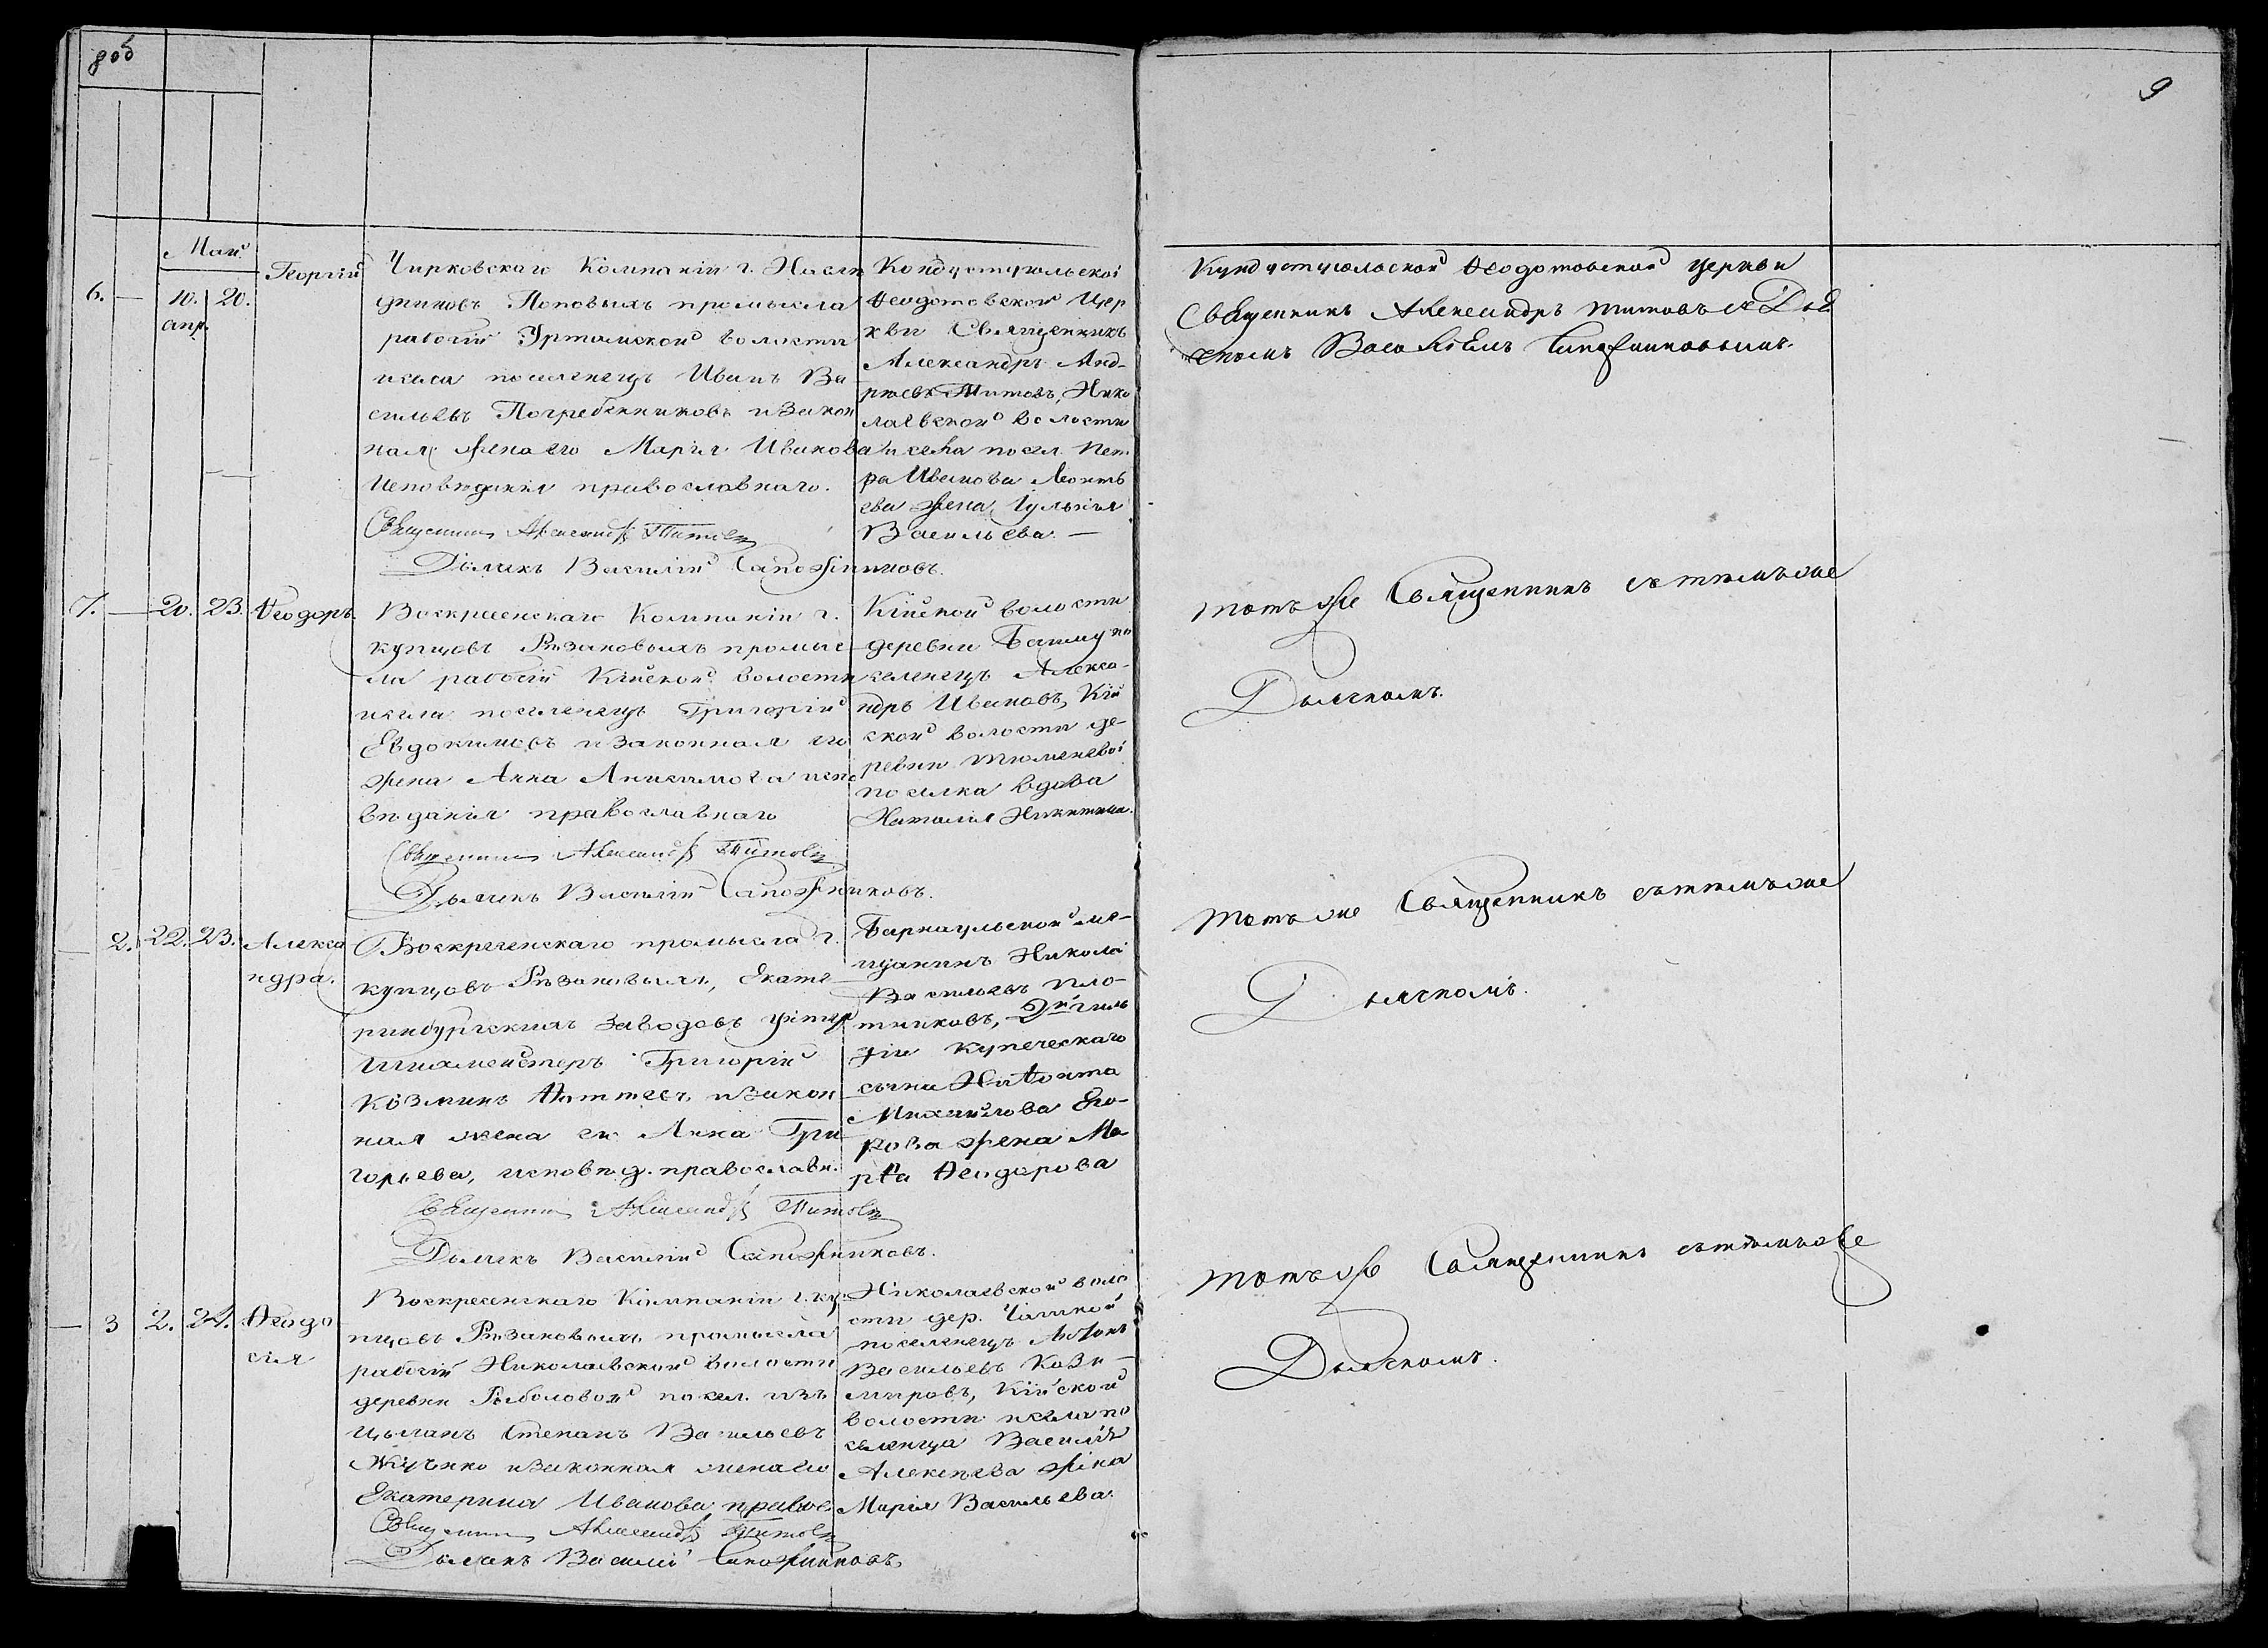 8об
9
Маи
6. — 10. апр. 20. Георгій
Чирковскаго Компаніи г. Наслѣ
дниковъ Поповыхъ промысла
рабочій Уртамской волости
исела поселенецъ Иванъ Ва
сильевъ Погребенниковъ изакон
ная женаего Марья Иванова
Исповѣданія православнаго.
Священникъ Александръ Титовъ
Дьячекъ Василій Сапожниковъ.
Кондустуюльской
Ѳеодотовской Цер
кви Священникъ
Александръ Анд-
реевъ Титовъ, Нико
лаевской волости
и села посел. Пет
ра Иванова Леонть
ева жена Іулинія
Васильева. —
Кундустуюльской Ѳеодотовской церкви
Священникъ Александръ Титовъ съ Дья
чкомъ Василіемъ Сапожниковымъ.
7. — 20. 23. Ѳеодоръ.
Воскресенскаго Компаніи г.
купцовъ Рѣзановыхъ промыс
ла рабочій Кійской волости
исела поселенецъ Григорій
Евдокимовъ изаконная его
жена Анна Анисимова испо
вѣданія православнаго
Священникъ Александръ Титовъ
Дьячекъ Василій Сапожниковъ.
Кійской волости
деревни по
селенецъ Алекса-
ндръ Ивановъ, Кій
ской волости де-
ревни Тюменевой
поселка вдова
Наталія Никитина.
тотъ же Священникъ съ тѣмъ же
Дьячкомъ.
— 2. 22. 23. Алекса
ндра.
Воскресенскаго промысла г.
купцовъ Рѣзановыхъ, Екате
ринбургскихъ заводовъ унтер
шихмейстеръ Григорій
Козминъ изакон
ная жена его Анна Гри
горьева, исповѣд. православн.
Священникъ Александръ Титовъ
Дьячекъ Василій Сапожниковъ.
Барнаульской мѣ-
щанинъ Николай
Васильевъ Пло-
тниковъ, 2й гиль
діи купеческаго
сына
Михайлова Его-
рова жена Ма-
рѳа Ѳеодорова
тотъ же Священникъ съ тѣмъ же
Дьячкомъ.
— 3 2. 24. Ѳеодо
сія
Воскресенскаго Компаніи г. ку
пцовъ Рѣзановыхъ промысла
рабочій Николаевской волости
деревни Рыболовой посел. изъ
цыганъ Степанъ Васильевъ
изаконная женаего
Екатерина Иванова, правос.
Священникъ Александръ Титовъ
Дьячекъ Василій Сапожниковъ.
Николаевской воло
сти дер.
поселенецъ Антонъ
Васильевъ Кази-
мировъ, Кійской
волости исела по
селенца Василія
Алексѣева жена
Марія Васильева.
тотъ же Священникъ съ тѣмъ же
Дьячкомъ.